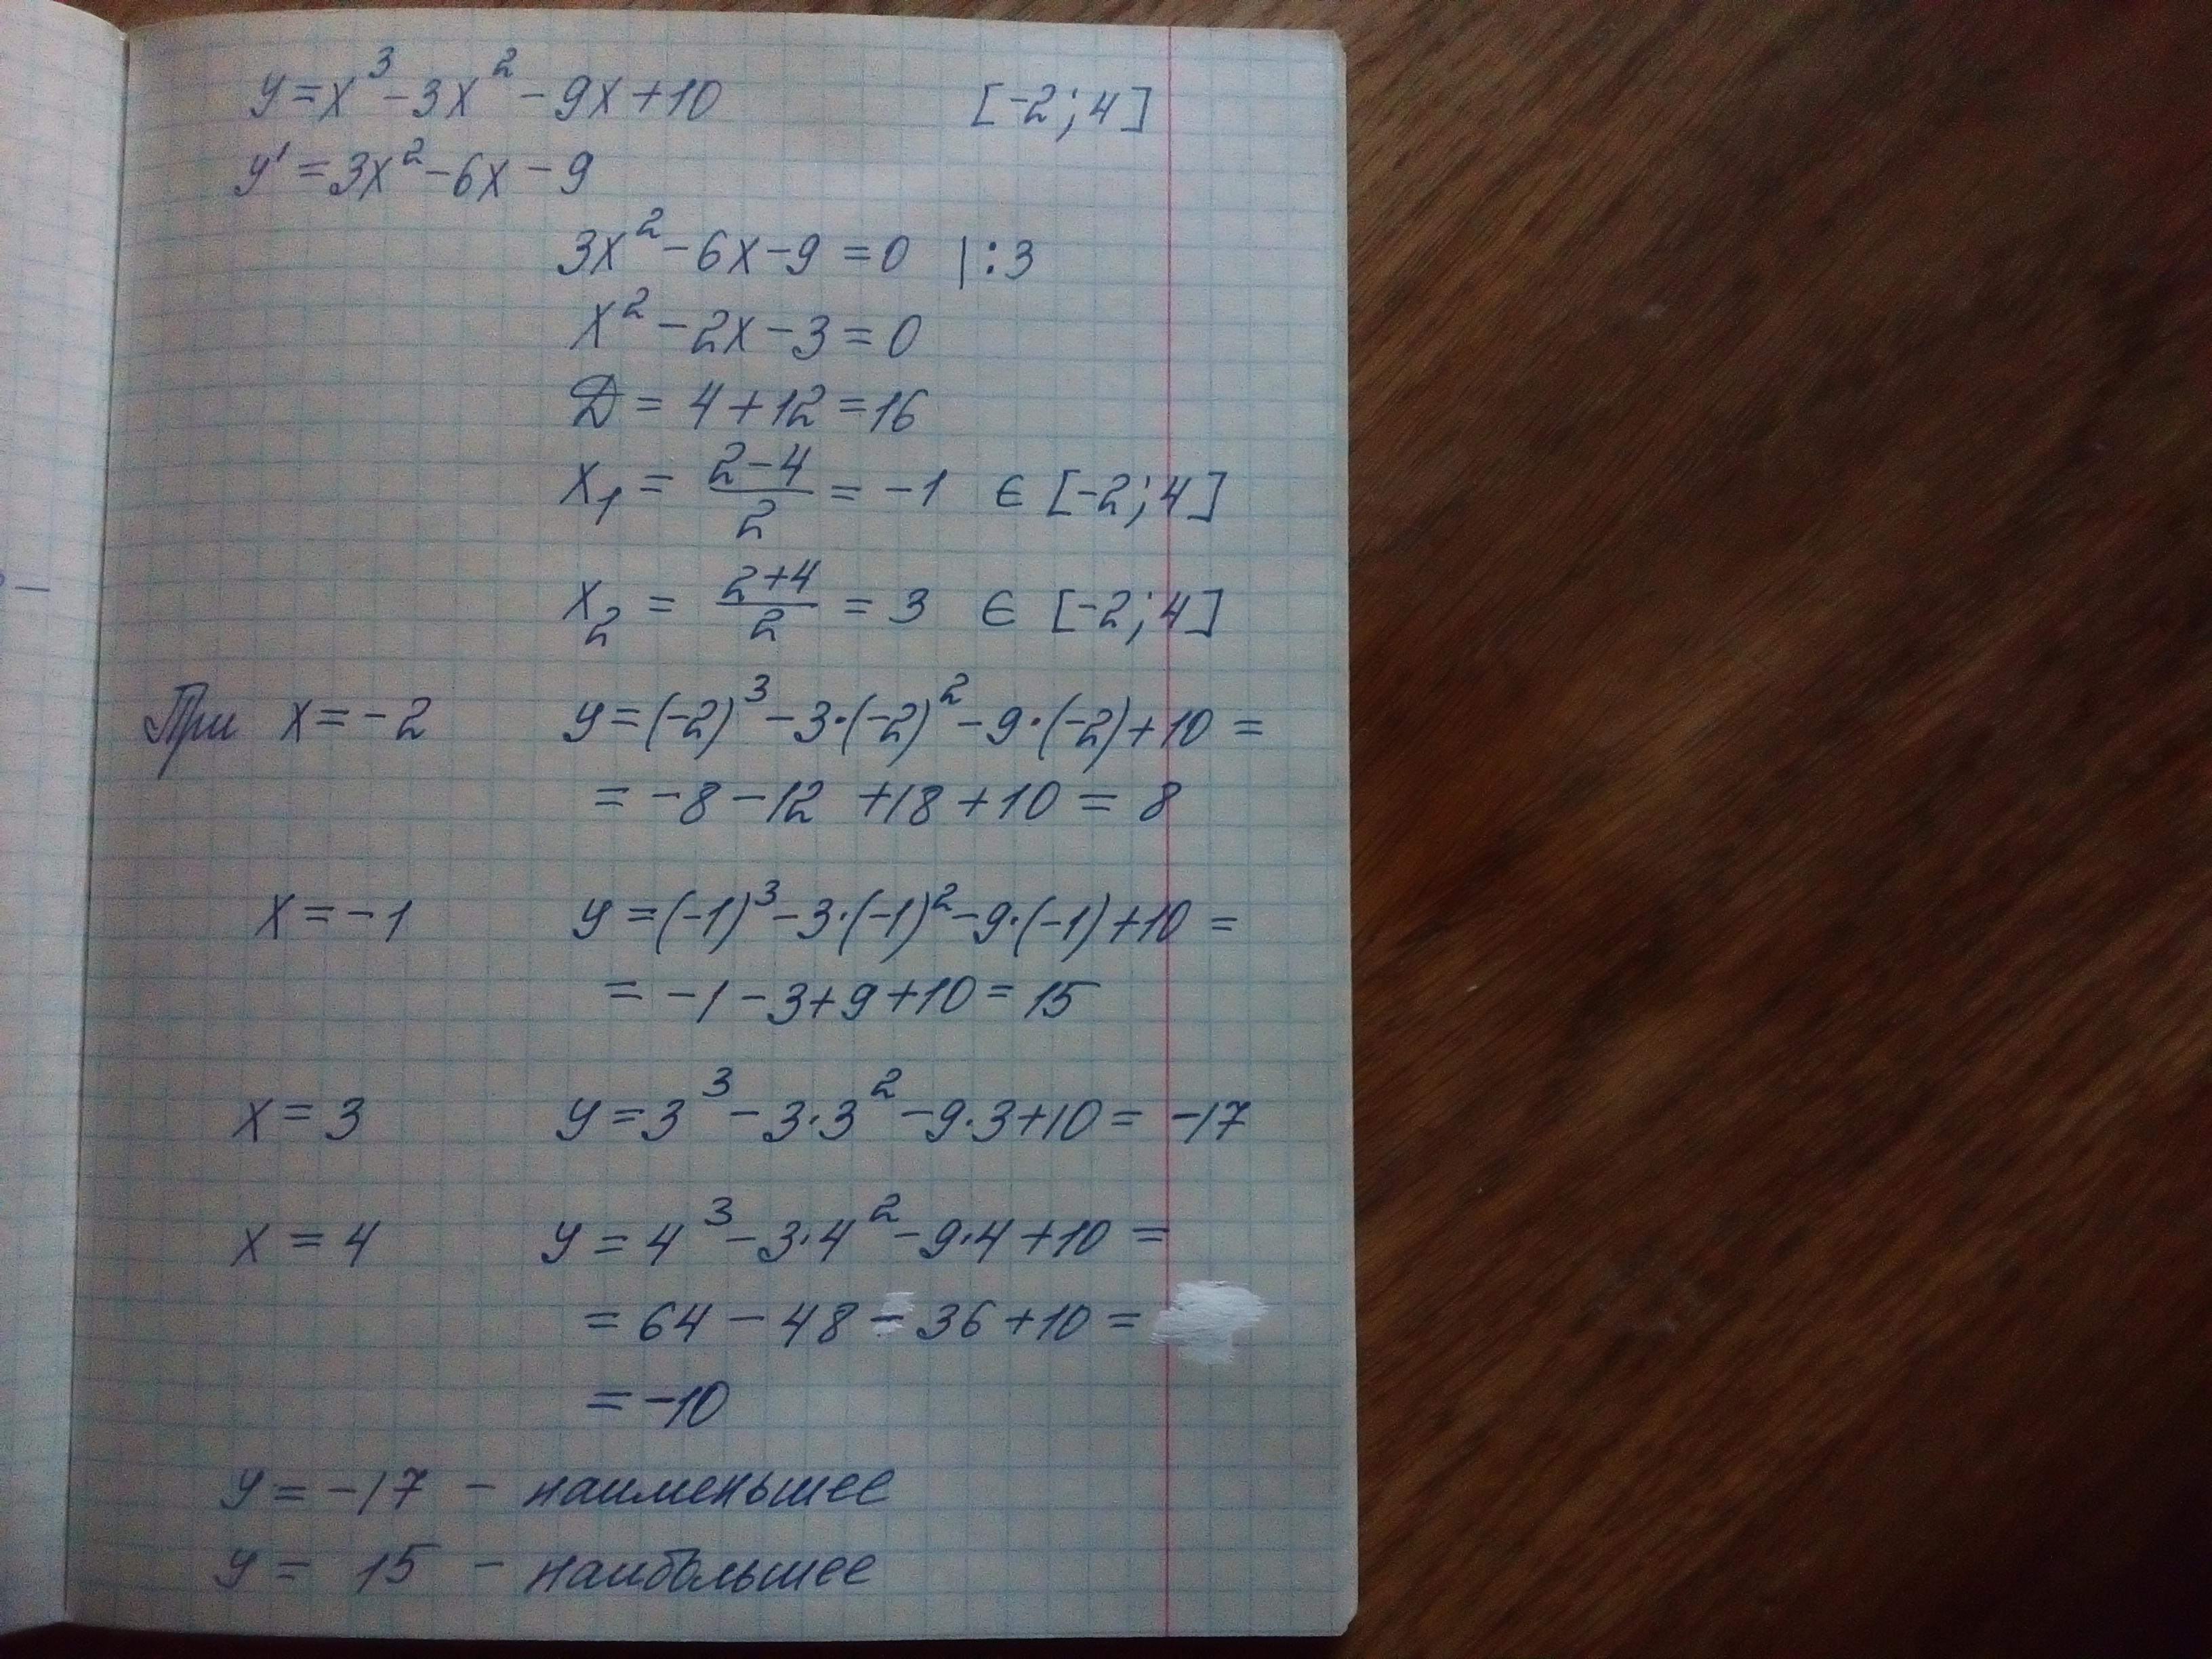 y=x³-3x²-9x+10 [-2;4]
y'=3x²-6x-9
3x²-6x-9=0 |:3
x²-2x-3=0
D=4+12=16
x₁=(2-4)/2=-1 ∈ [-2;4]
x₂=(2+4)/2=3 ∈ [-2;4]
При x=-2 y=(-2)³-3·(-2)²-9·(-2)+10=
=-8-12+18+10=8
x=-1 y=(-1)³-3·(-1)²-9·(-1)+10=
=-1-3+9+10=15
x=3 y=3³-3·3²-9·3+10=-17
x=4 y=4³-3·4²-9·4+10=
=64-48-36+10=
=-10
y=-17 - наименьшее
y= 15 - наибольшее